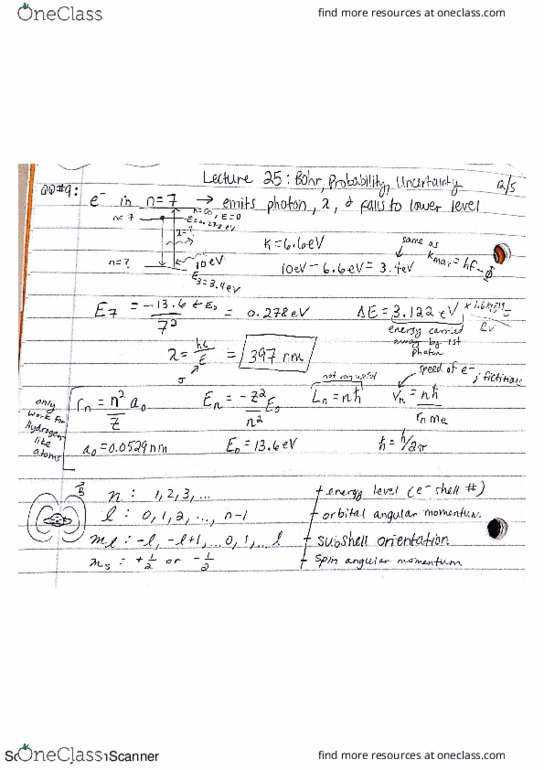 OneClass find more resources at oneclass.com
Lecture 25: Bohr, Probability, Uncertainty 12/5
QQ#9: e⁻ in n=7 → emits photon, λ, & falls to lower level
n=∞, E=0
n=7 E=0.278 eV
λ=?
K=6.6eV same as
n=? 10eV 10eV-6.6eV = 3.4eV Kmax = hf-ϕ
E₃=3.4eV
E₇ = -13.6 / 7² = 0.278eV ΔE = 3.122 eV
energy carried away by 1st photon
λ = hc/E = 397 nm
J
only work for hydrogen like atoms
rₙ = n²/Z a₀ Eₙ = -Z²/n² E₀ Lₙ = nħ not very useful vₙ = nħ / rₙ mₑ speed of e⁻, fictitious
a₀ = 0.0529nm E₀ = 13.6eV ħ = h/2π
B
n : 1,2,3,... energy level (e⁻ shell #)
l : 0,1,2,..., n-1 orbital angular momentum.
mₗ : -l, -l+1,...0,1,...l subshell orientation
mₛ : +1/2 or -1/2 spin angular momentum
OneClass Scanner find more resources at oneclass.com